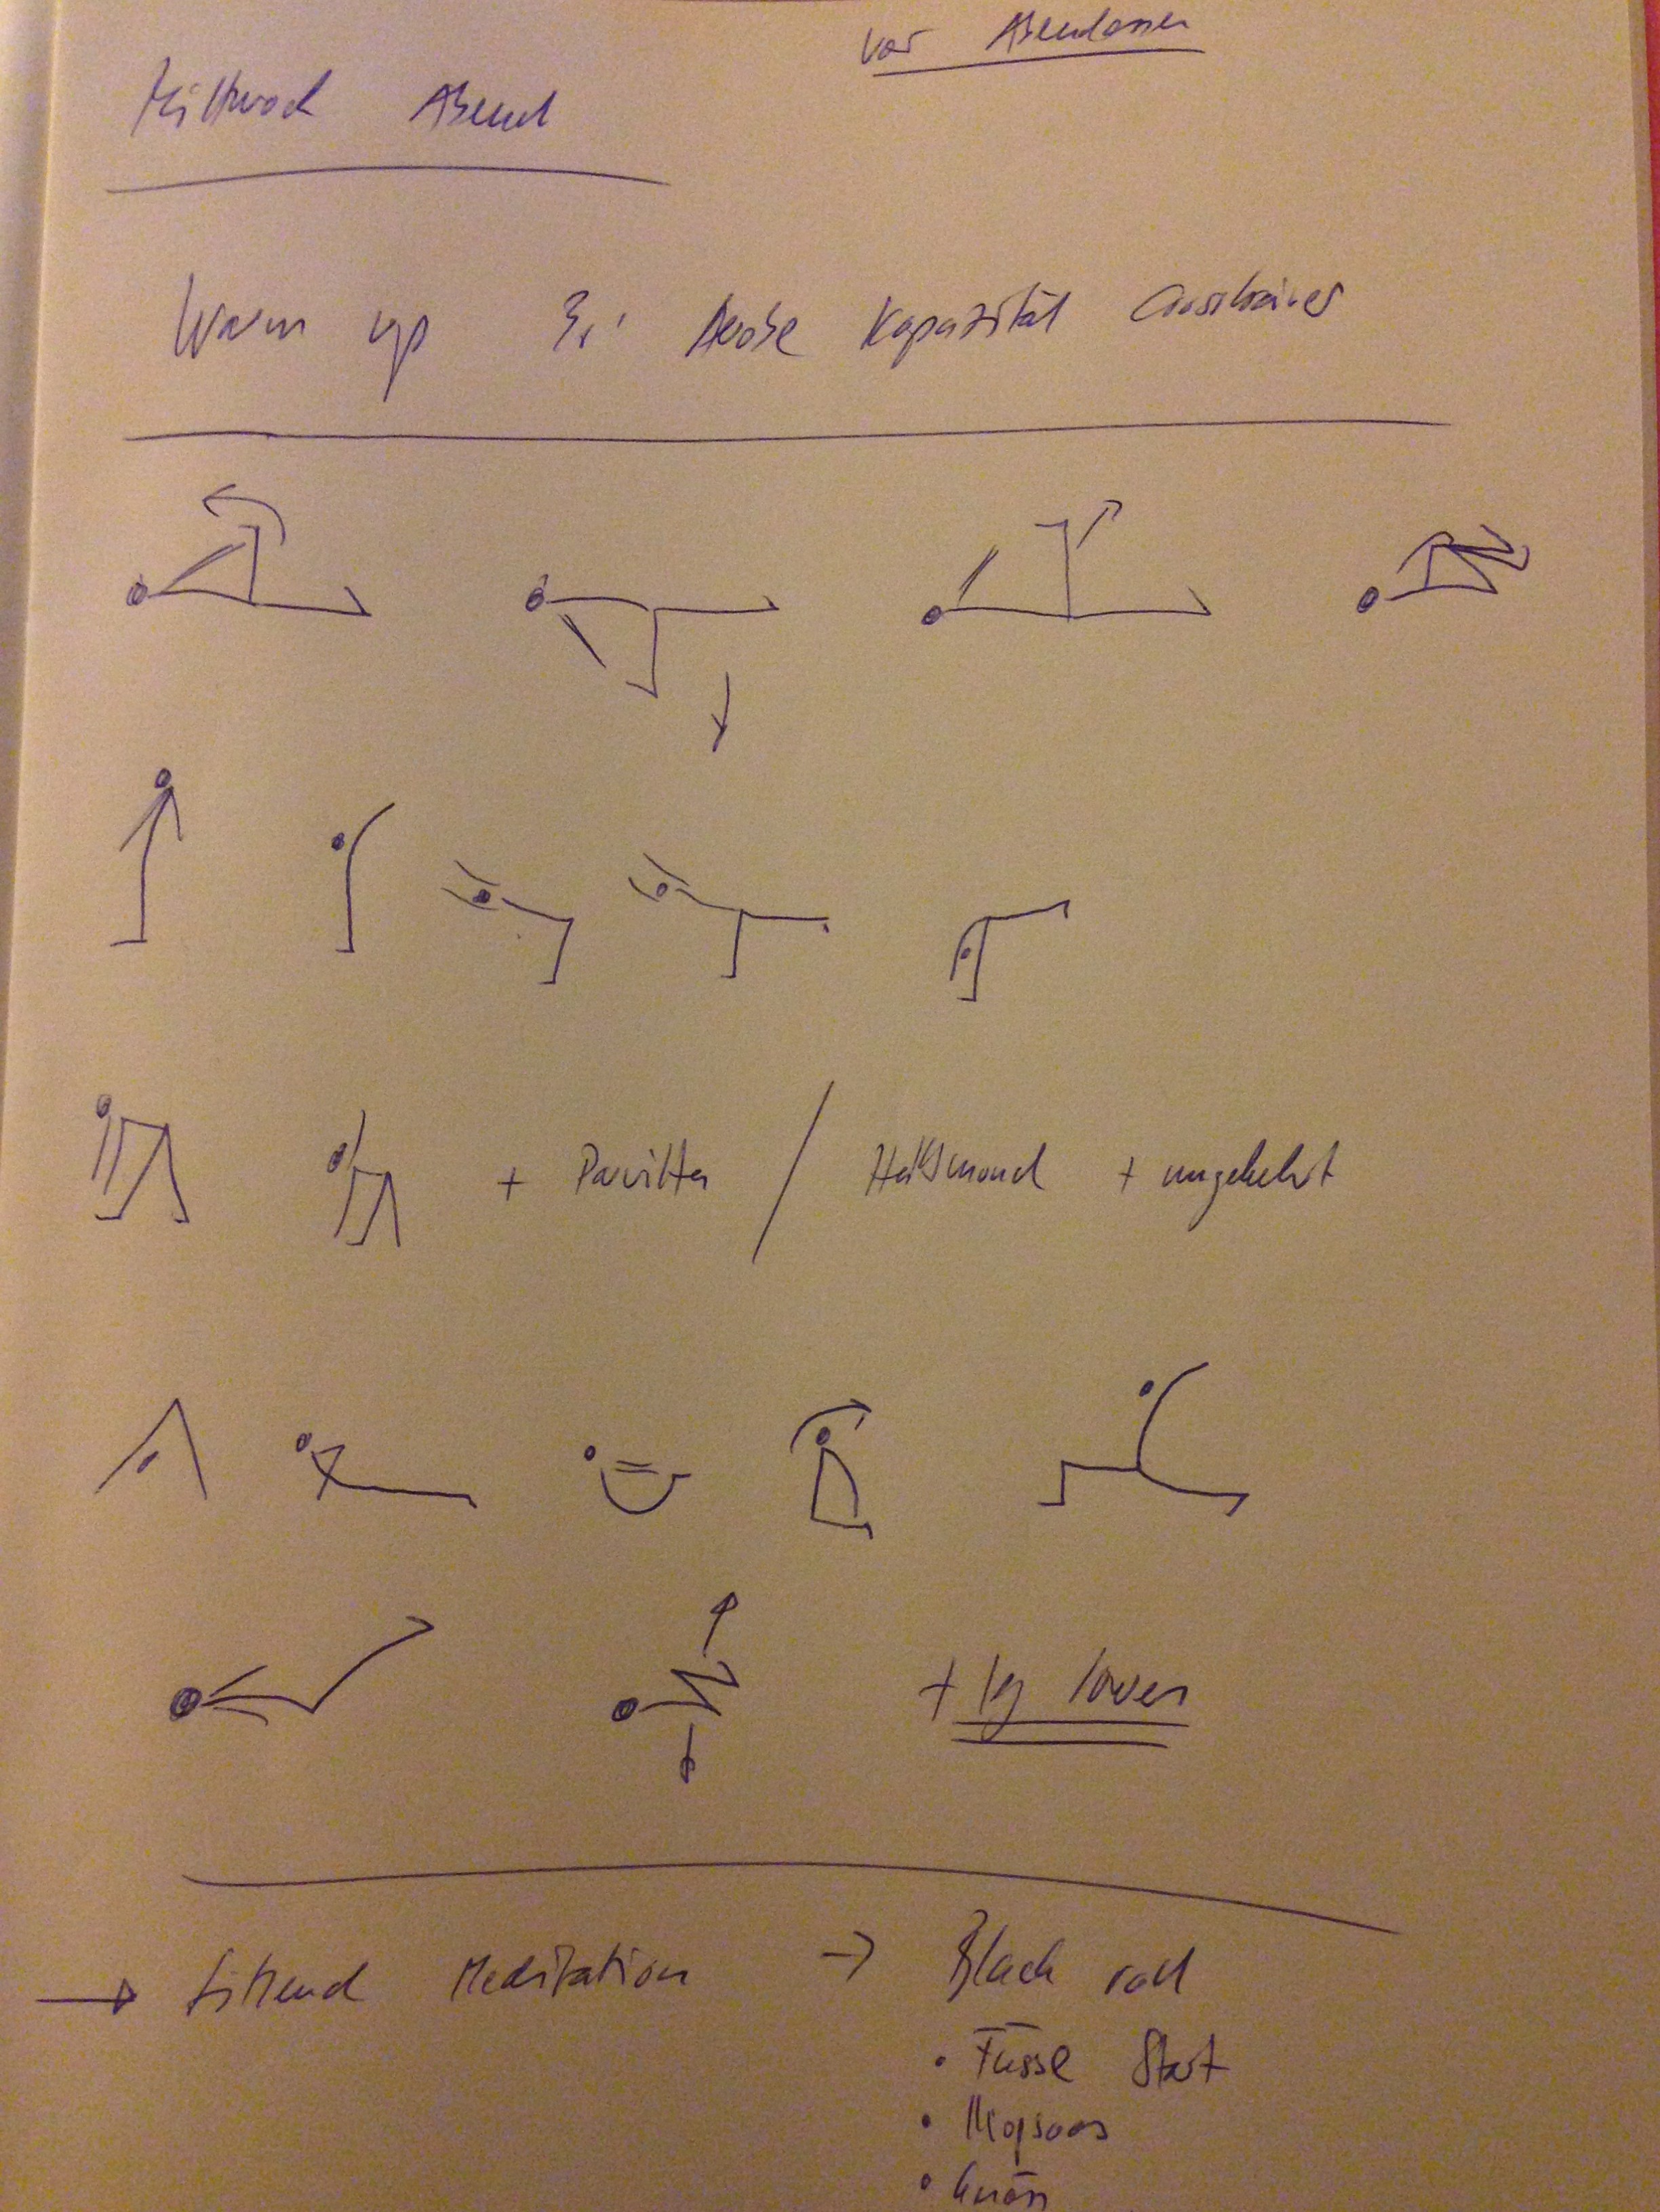 vor Abendessen
Mittwoch Abend
Warm up Aerobe Kapazität Crosstrainer
+ Parvritta / Halbmond + umgekehrt
+ leg lower
→ Sittend Meditation → Black roll
• Füsse Start
• Iliopsoas